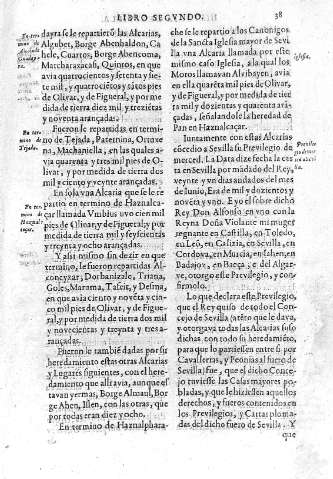 LIBRO SEGVNDO.
38
En termino de Alcalá Guadayra.
dayra se le repartiero las Alcarias,
Algubet, Borge Abenbaldon, Ca
hele, Cuartos, Borge Abencoma,
Matcharazacasi, Quintos, en que
avia quatrocientos y setenta y sie-
te mil, y quatrocientos y sātos pies
de Olivar, y de Figueral, y por me
dida de tierra diez mil, y trezietas
y noventa arançadas.
En termino de Tejada.
Fueronle repartidas en termi-
no de Tejada, Paternina, Ortove
na, Machaniella, en las quales a-
via quarenta y tres mil pies de O-
livar, y por medida de tierra dos
mil y ciento y cynte arançadas.
En termino de Haznalcaçar.
En sola vna Alcaria que se le re
partio en termino de Haznalca-
çar llamada Vmbius uvo cien mil
pies de Olivar, y de Figueral, y por
medida de tierra mil y seyscientas
y treynta y ocho arançadas.
Y assi mismo sin dezir en que
termino, le fueron repartidas Al-
concyzar, Dorbanizole, Triana,
Goles, Marama, Tafcit, y Defima,
en que avia ciento y novēta y cin-
co mil pies de Olivar, y de Figue-
ral, y por medida de tierra dos mil
y novecientas y treynta y tres a-
rançadas.
Fueron le también dadas por su
heredamiento estas otras Alcarias
y Lugares siguientes, con el here-
damiento que alli avia, aunque el
tavan yermas, Borge Almaul, Bor
ge Aben, Islen, con las otras, que
por todas eran diez y ocho.
En termino de Haznalphara-
che se le repartio a los Canonigos
de la Sancta Iglesia mayor de Sevi
lla vna Alcaria llamada por este
mismo caso Iglesia, a la qual los
Moros llamavan Alvibayen, avia
en ella quarēta mil pies de Olivar,
y de Figueral, y por medida de tier
ra mil y dozientos y quarenta arā-
çadas, señalandole la heredad de
Pan en Haznalcaçar.
Iglesia.
Juntamente con estas Alcarias
cōcedio a Sevilla su Previlegio de
merced. La Data dize fecha la car
ta en Sevilla, por mādado del Rey,
veynte y vn dias andados del mes
de Iunio, Era de mil y dozientos y
noventa y vno. E yo el sobre dicho
Rey Don Alfonso en vno con la
Reyna Doña Violante mi muger
regnante en Castilla, en Toledo,
en Leō, en Galizia, en Sevilla, en
Cordova, en Murcia, en Iahen, en
Badajoz, en Baeça, y en el Algar-
ve, otorgo este Previlegio, y con
firmolo.
Lo que declara este Previlegio,
que el Rey quiso de todo el Con-
cejo de Sevilla (a tēto que le dava,
y otorgava todas las Alcarias suso
dichas, con todo su heredamiēto,
para que lo partiessen entre si por
Cavallerias, y Peonias al fuero de
Sevilla) fue, que el dicho Conce-
jo tuviesse las Casas mayores po-
bladas, y que le hiziessen aquellos
derechos, y fueros contenidos en
los Previlegios, y Cartas ploma-
das del dicho fuero de Sevilla. Y
que